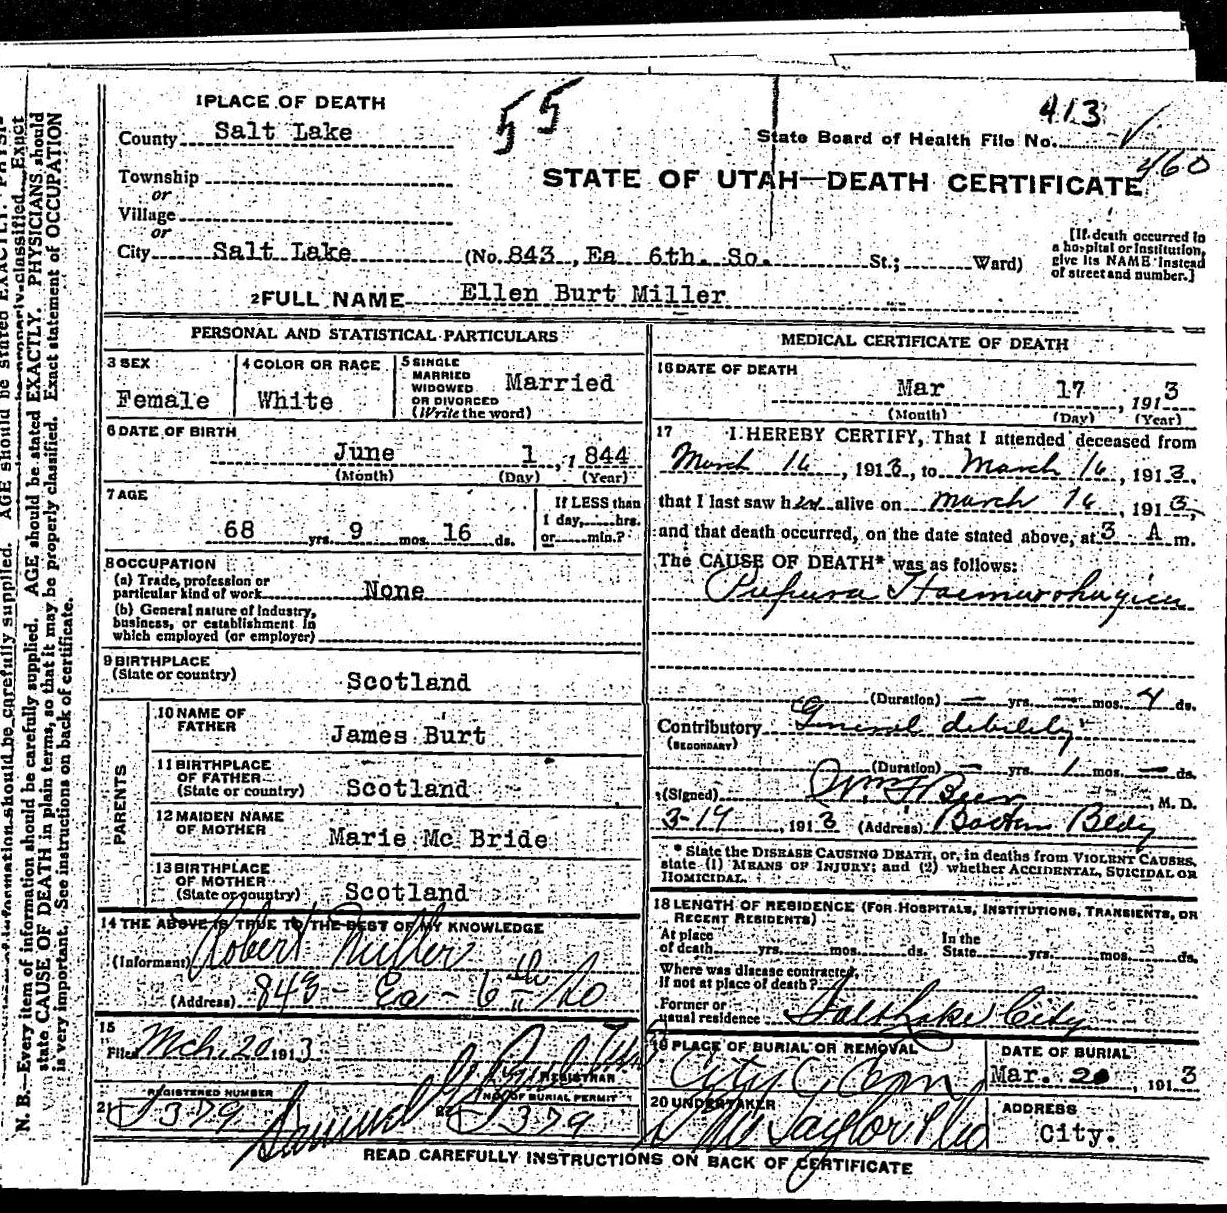 1 PLACE OF DEATH
55
413
County Salt Lake
State Board of Health File No.
460
Township
or
STATE OF UTAH—DEATH CERTIFICATE
Village
or
City Salt Lake (No. 843, Ea 6th. So. St.; Ward)
[If death occurred in
a hospital or institution,
give its NAME instead
of street and number.]
2 FULL NAME Ellen Burt Miller
PERSONAL AND STATISTICAL PARTICULARS
3 SEX
Female
4 COLOR OR RACE
White
5 SINGLE
MARRIED
WIDOWED
OR DIVORCED
(Write the word)
Married
6 DATE OF BIRTH
June 1, 1844
(Month) (Day) (Year)
7 AGE
68 yrs. 9 mos. 16 ds.
If LESS than
1 day, hrs.
or min.?
8 OCCUPATION
(a) Trade, profession or
particular kind of work None
(b) General nature of industry,
business, or establishment in
which employed (or employer)
9 BIRTHPLACE
(State or country)
Scotland
PARENTS
10 NAME OF
FATHER
James Burt
11 BIRTHPLACE
OF FATHER
(State or country) Scotland
12 MAIDEN NAME
OF MOTHER Marie Mc Bride
13 BIRTHPLACE
OF MOTHER
(State or country) Scotland
14 THE ABOVE IS TRUE TO THE BEST OF MY KNOWLEDGE
(Informant) Robert Miller
(Address) 843 - Ea - 6th So
15
Filed Mch. 20 1913
REGISTRAR
REGISTERED NUMBER
21 J379
Samuel G.
NO. OF BURIAL PERMIT
22 J379
MEDICAL CERTIFICATE OF DEATH
16 DATE OF DEATH
Mar 17, 1913
(Month) (Day) (Year)
17 I HEREBY CERTIFY, That I attended deceased from
March 16, 1913, to March 16, 1913,
that I last saw her alive on March 16, 1913,
and that death occurred, on the date stated above, at 3 A m.
The CAUSE OF DEATH* was as follows:
(Duration) — yrs. — mos. 4 ds.
Contributory General debility
(SECONDARY)
(Duration) — yrs. 1 mos. — ds.
(Signed) Wm F Beer, M. D.
3-19, 1913 (Address) Boston Bldg
* State the DISEASE CAUSING DEATH, or, in deaths from VIOLENT CAUSES,
state (1) MEANS OF INJURY; and (2) whether ACCIDENTAL, SUICIDAL OR
HOMICIDAL.
18 LENGTH OF RESIDENCE (FOR HOSPITALS, INSTITUTIONS, TRANSIENTS, OR
RECENT RESIDENTS)
At place
of death yrs. mos. ds.
In the
State yrs. mos. ds.
Where was disease contracted,
If not at place of death?
Former or
usual residence Salt Lake City
19 PLACE OF BURIAL OR REMOVAL
City Cem
DATE OF BURIAL
Mar. 20, 1913
20 UNDERTAKER
Taylor
ADDRESS
City.
READ CAREFULLY INSTRUCTIONS ON BACK OF CERTIFICATE
N. B.—Every item of information should be carefully supplied. AGE should be stated EXACTLY. PHYSICIANS should
state CAUSE OF DEATH in plain terms, so that it may be properly classified. Exact statement of OCCUPATION
is very important. See instructions on back of certificate.